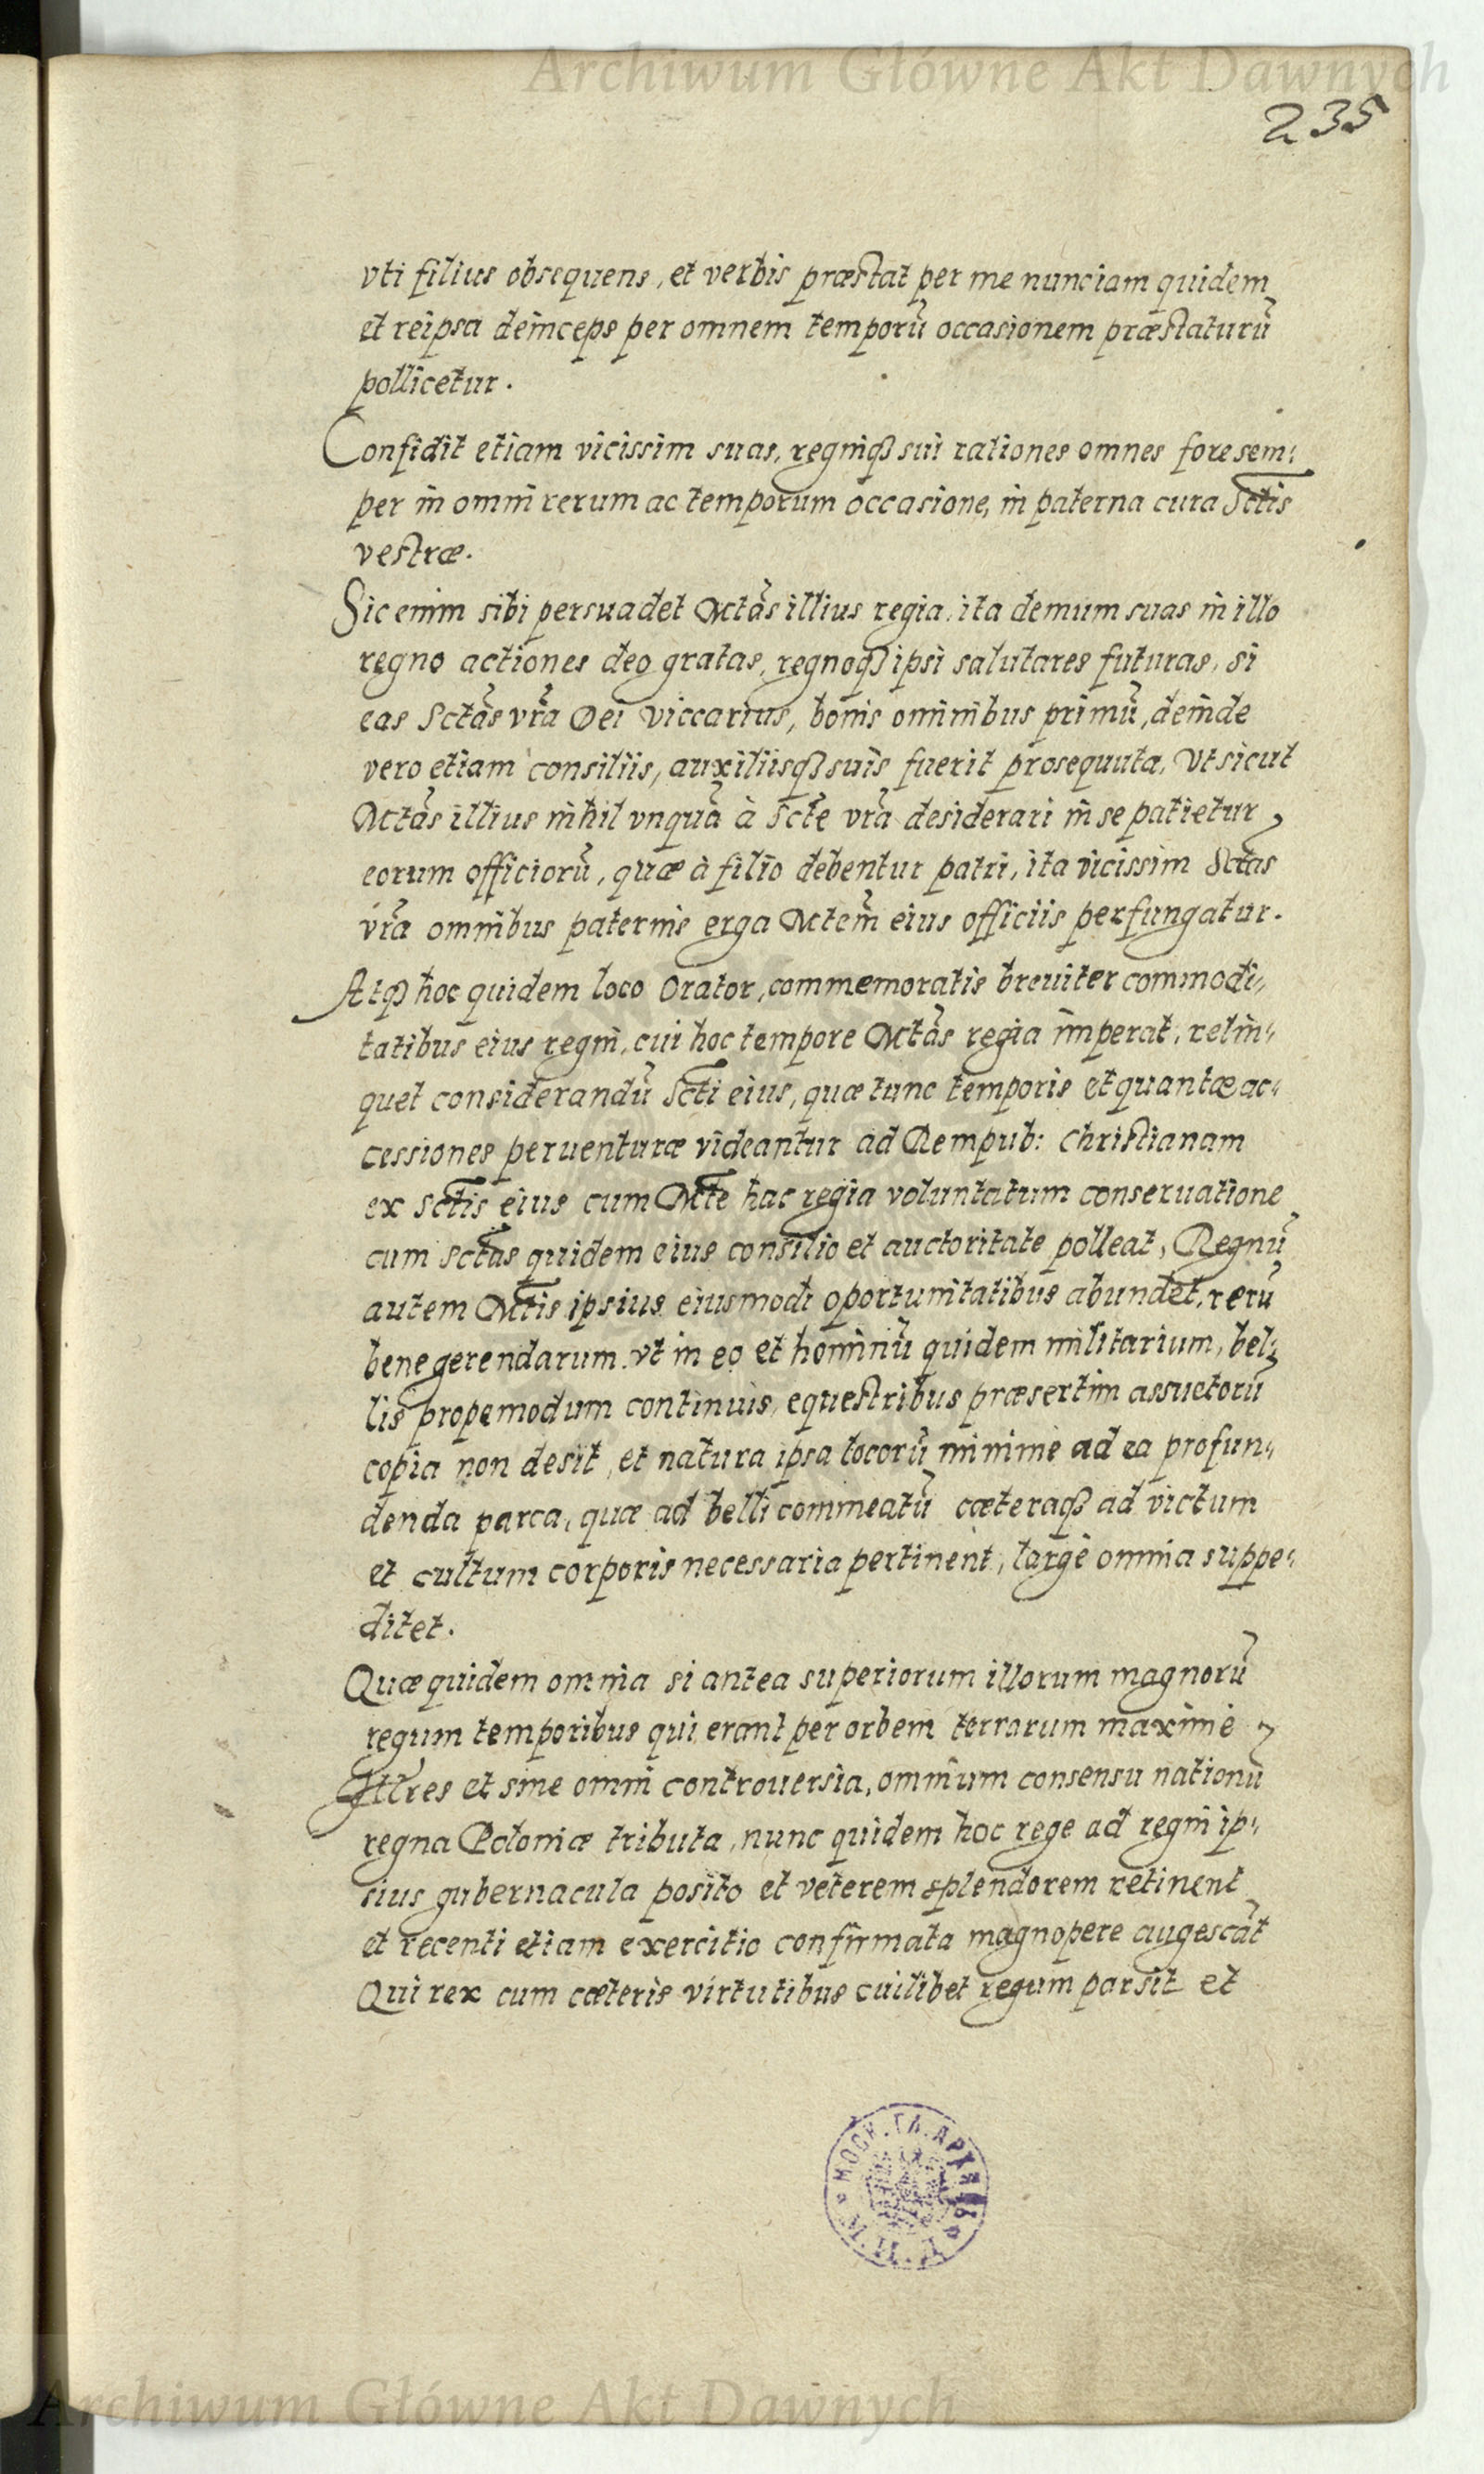 Archiwum Główne Akt Dawnych
235
vti filius obsequens, et verbis præstat per me nunciam quidem
et reipsa deinceps per omnem temporũ occasionem præstaturũ
pollicetur.
Confidit etiam vicissim suas, regniqȝ sui rationes omnes fore sem:
per in omni rerum ac temporum occasione, in paterna cura Sctis
vestræ.
Sic enim sibi persuadet Mctãs illius regia, ita demum suas in illo
regno actiones deo gratas, regnoqȝ ipsi salutares futuras, si
eas Sctãs vrã Dei viccarius, bonis ominibus primũ, deinde
vero etiam consiliis, auxiliisqȝ suis fuerit prosequuta, Vt sicut
Mctãs illius nihil vnquã à Scte vrã desiderari in se patietur
eorum officiorũ, quæ à filio debentur patri, ita vicissim Sctas
vrã omnibus paternis erga Mctem̃ eius officiis perfungatur.
Atqȝ hoc quidem loco Orator, commemoratis breuiter commodi,,
tatibus eius regni, cui hoc tempore Mctãs regia imperat, relin,,
quet considerandũ Scti eius, quæ tunc temporis et quantæ ac,,
cessiones peruenturæ videantur ad Rempub: Christianam
ex Sctis eius cum Mte hac regia voluntatum conseruatione
cum Sctas quidem eius consilio et auctoritate polleat, Regnũ
autem Mtis ipsius eiusmodi oportunitatibus abundet, rerũ
bene gerendarum vt in eo et hominũ quidem militarium, bel:
lis propemodum continuis, equestribus præsertim assuetorũ
copia non desit, et natura ipsa locorũ minime ad ea profun,,
denda parca, quæ ad belli commeatũ cæteraqȝ ad victum
et cultum corporis necessaria pertinent, largè omnia suppe,,
ditet.
Quæ quidem omnia si antea superiorum illorum magnorũ
regum temporibus qui erant per orbem terrarum maximè
Illres et sine omni controuersia, omnium consensu nationũ
regna Poloniæ tributa, nunc quidem hoc rege ad regni ip,,
sius gubernacula posito et veterem splendorem retinent
et recenti etiam exercitio confirmata magnopere augescãt
Qui rex cum cæteris virtutibus cuilibet regum par sit et
МОСК. ГЛ. АРХИВЪ
Archiwum Główne Akt Dawnych